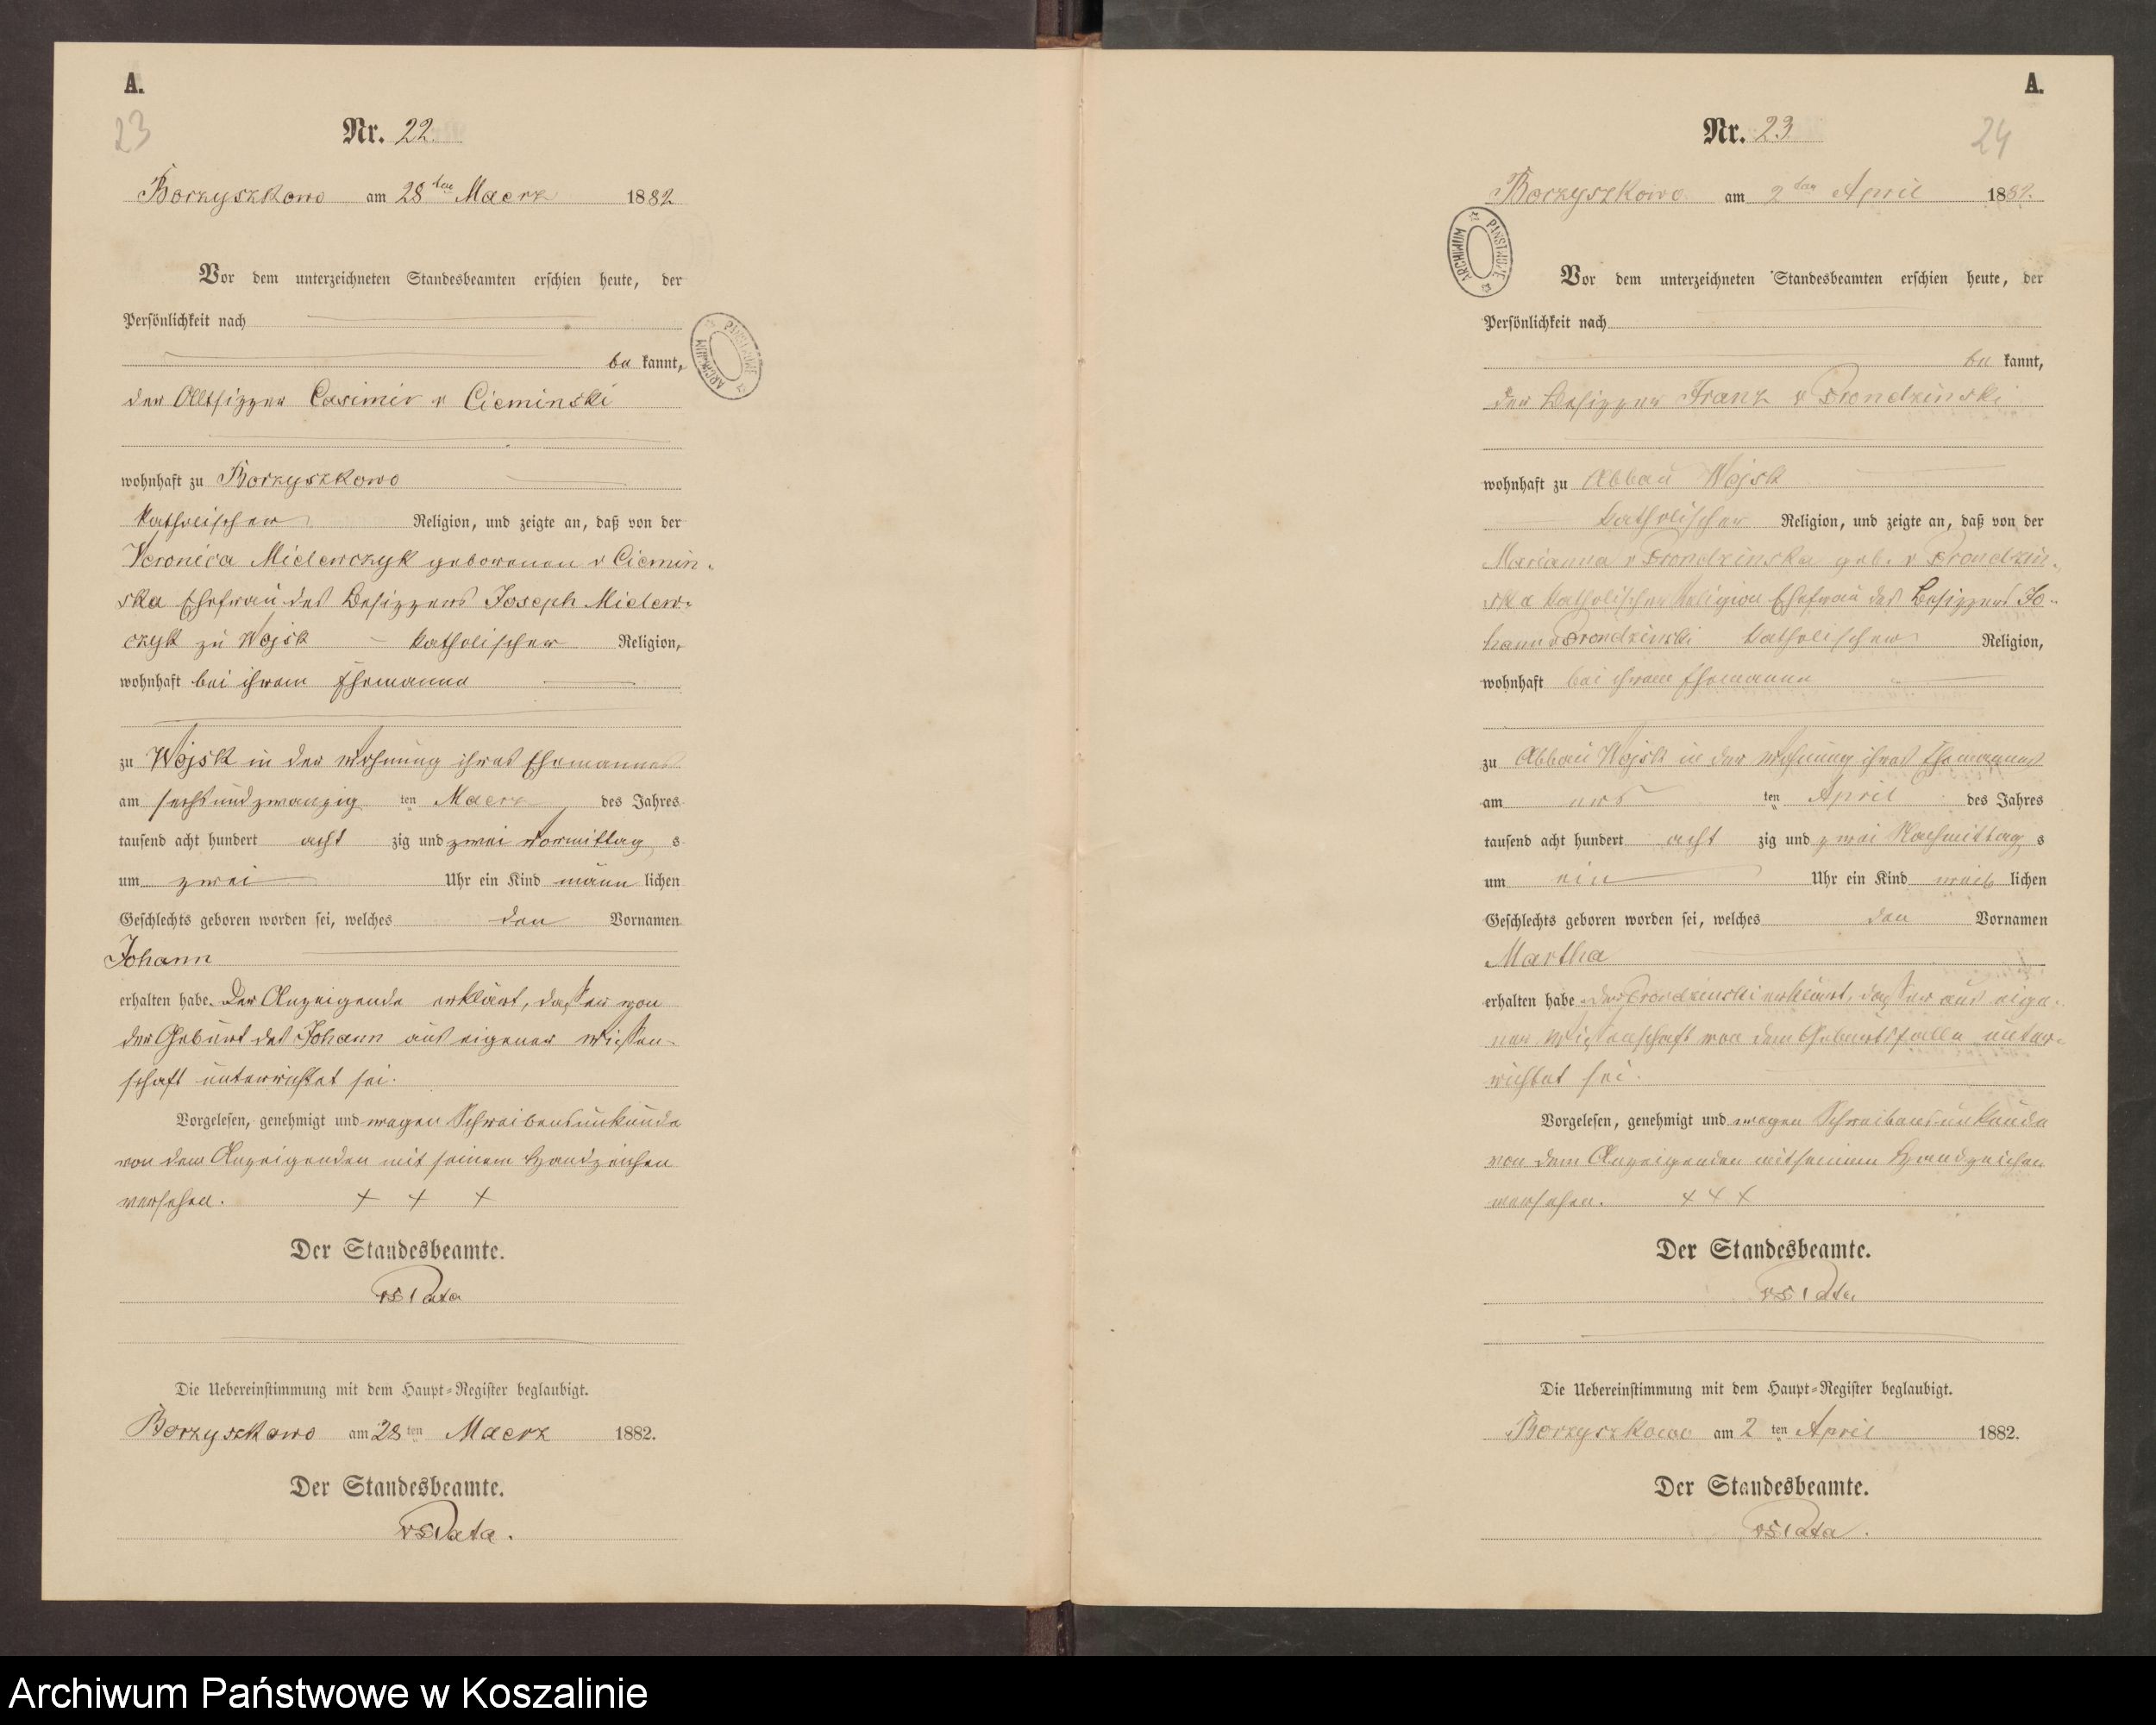 A.
23
Nr. 22.
Borzyszkowo am 28ten Maerz 1882
Vor dem unterzeichneten Standesbeamten erschien heute, der
Persönlichkeit nach
be kannt,
der Altsizzer Casimir v Cieminski
wohnhaft zu Borzyszkowo
katholischer Religion, und zeigte an, daß von der
Veronica Mielewczyk geborenen v Ciemin-
ska Ehefrau des Besizzers Joseph Mielew-
czyk zu Wojsk – katholischer Religion,
wohnhaft bei ihrem Ehemanne
zu Wojsk in der Wohnung ihres Ehemannes
am sechs und zwanzig ten Maerz des Jahres
tausend acht hundert acht zig und zwei Vormittag s
um zwei Uhr ein Kind männ lichen
Geschlechts geboren worden sei, welches den Vornamen
Johann
erhalten habe. Der Anzeigende erklärt, daß er von
der Geburt des Johann aus eigener Wissen-
schaft unterrichtet sei.
Vorgelesen, genehmigt und wegen Schreibensunkunde
von dem Anzeigenden mit seinem Handzeichen
versehen. + + +
Der Standesbeamte.
Die Uebereinstimmung mit dem Haupt-Register beglaubigt.
Borzyszkowo am 28 ten Maerz 1882.
Der Standesbeamte.
ARCHIWUM PAŃSTWOWE
A.
24
Nr. 23
Borzyszkowo am 2ten April 1882.
Vor dem unterzeichneten Standesbeamten erschien heute, der
Persönlichkeit nach
be kannt,
der Besizzer Franz v Prondzinski
wohnhaft zu Abbau Wojsk
katholischer Religion, und zeigte an, daß von der
Marianna v Prondzinska geb. v Prondzin-
ska katholischer Religion Ehefrau des Besizzers Jo-
hann v Prondzinski katholischer Religion,
wohnhaft bei ihrem Ehemanne
zu Abbau Wojsk in der Wohnung ihres Ehemannes
am ers ten April des Jahres
tausend acht hundert acht zig und zwei Nachmittag s
um ein Uhr ein Kind weib lichen
Geschlechts geboren worden sei, welches den Vornamen
Martha
erhalten habe. Der Prondzinski erklärt, daß er aus eige-
ner Wissenschaft von dem Geburtsfalle unter-
richtet sei.
Vorgelesen, genehmigt und wegen Schreibensunkunde
von dem Anzeigenden mit seinem Handzeichen
versehen. + + +
Der Standesbeamte.
Die Uebereinstimmung mit dem Haupt-Register beglaubigt.
Borzyszkowo am 2 ten April 1882.
Der Standesbeamte.
ARCHIWUM PAŃSTWOWE
Archiwum Państwowe w Koszalinie